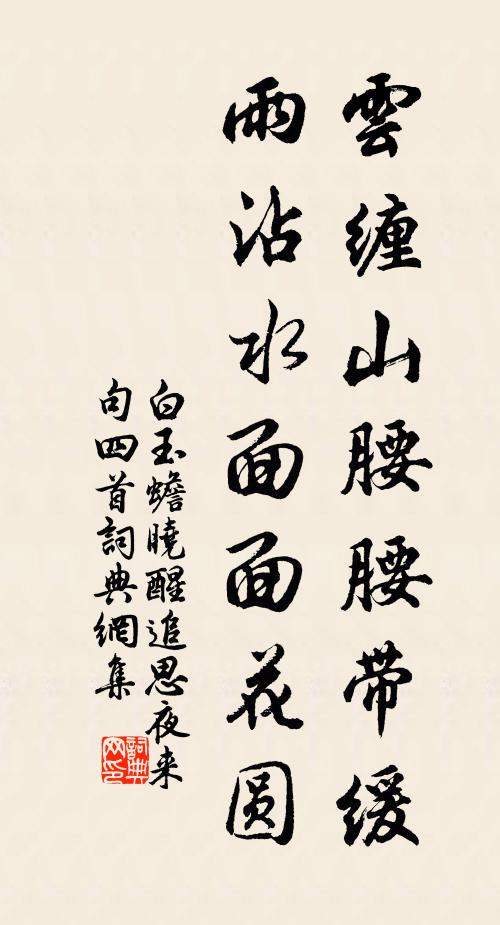 雲纏山腰腰带緩
雨沾水面面花圓
白玉蟾曉醒追思夜来
句四首詞典網集
詞典網印